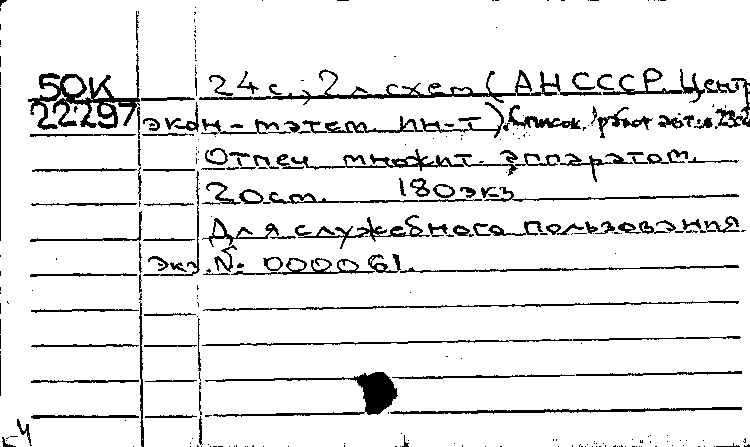 50К 24 с., 2 л. схем (АН СССР. Центр.
22297 экон-матем. ин-т). Список работ авт.: с. 23
Отпеч множит. аппаратом.
20 см. 180 экз
Для служебного пользования
Экз. № 000061.